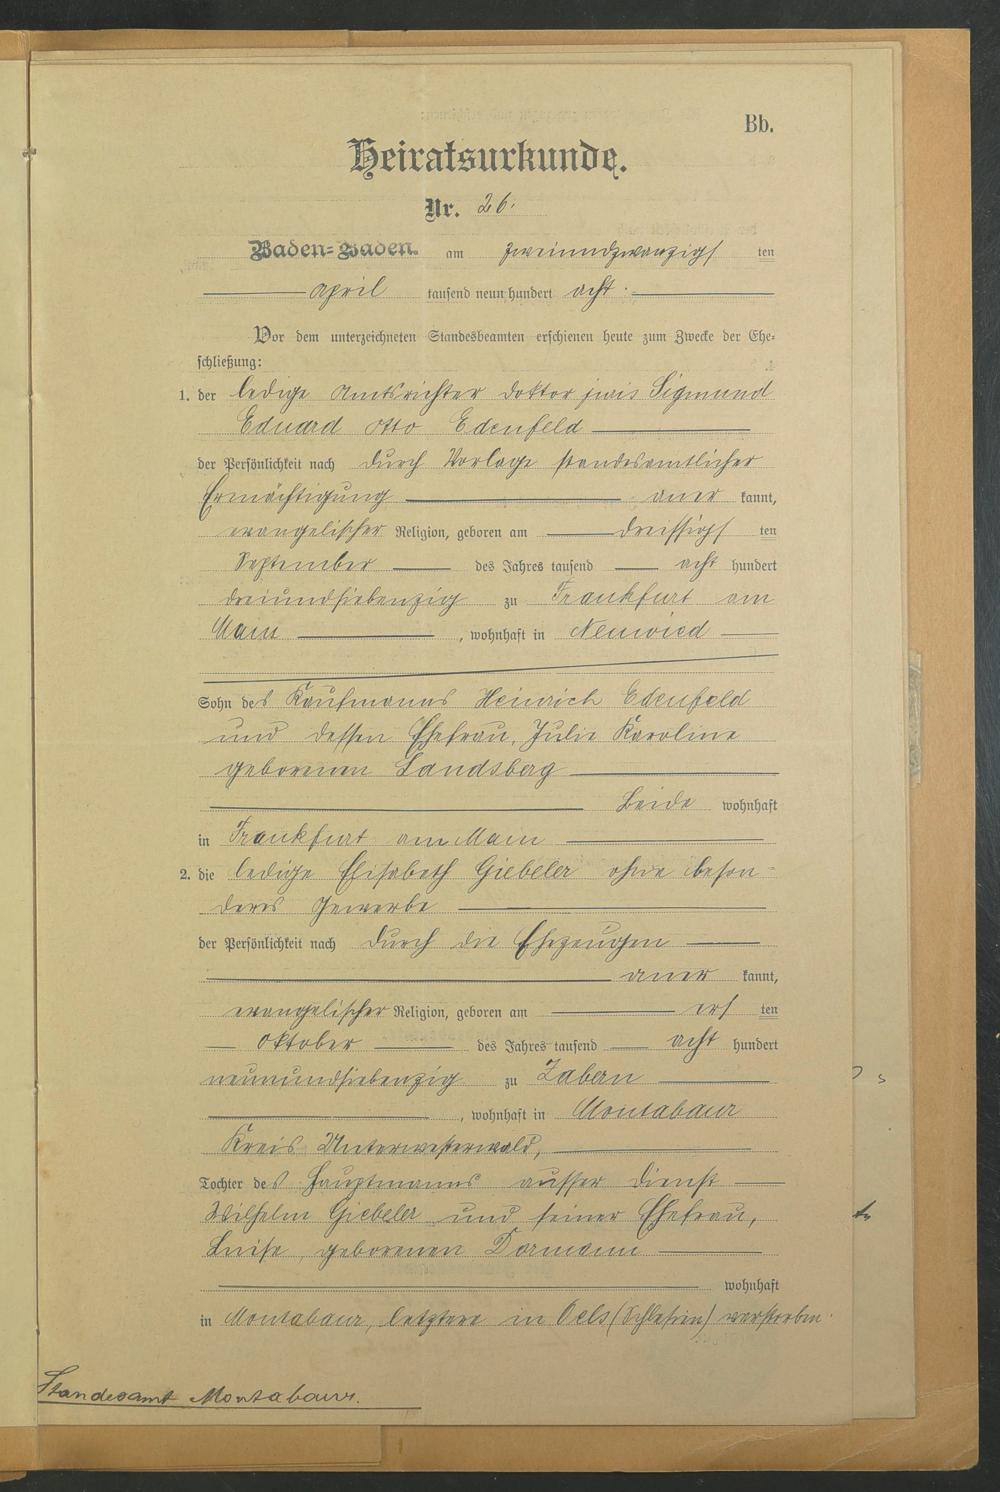 Bb.
Heiratsurkunde.
Nr. 26.
Baden-Baden. am zweiundzwanzigsten
April tausend neunhundert acht.
Vor dem unterzeichneten Standesbeamten erschienen heute zum Zwecke der Ehe-
schließung:
1. der ledige Amtsrichter doktor juris Sigmund
Eduard Otto Edenfeld
der Persönlichkeit nach durch Vorlage standesamtlicher
Ermächtigung anerkannt,
evangelischer Religion, geboren am dreissigsten
September des Jahres tausend acht hundert
dreiundsiebenzig zu Frankfurt am
Main, wohnhaft in Neuwied
Sohn des Kaufmanns Heinrich Edenfeld
und dessen Ehefrau, Julie Karoline
geborenen Landsberg
Beide wohnhaft
in Frankfurt am Main
2. die ledige Elisabeth Giebeler ohne beson-
deres Gewerbe
der Persönlichkeit nach durch die Ehezeugen
anerkannt,
evangelischer Religion, geboren am ersten
Oktober des Jahres tausend acht hundert
neunundsiebenzig zu Zabern
, wohnhaft in Montabaur
Kreis Unterwesterwald,
Tochter des Hauptmanns ausser Dienst
Wilhelm Giebeler und seiner Ehefrau,
Luise, geborenen Dormann
wohnhaft
in Montabaur, letztere in Oels (Schlesien) verstorben.
Standesamt Montabaur.